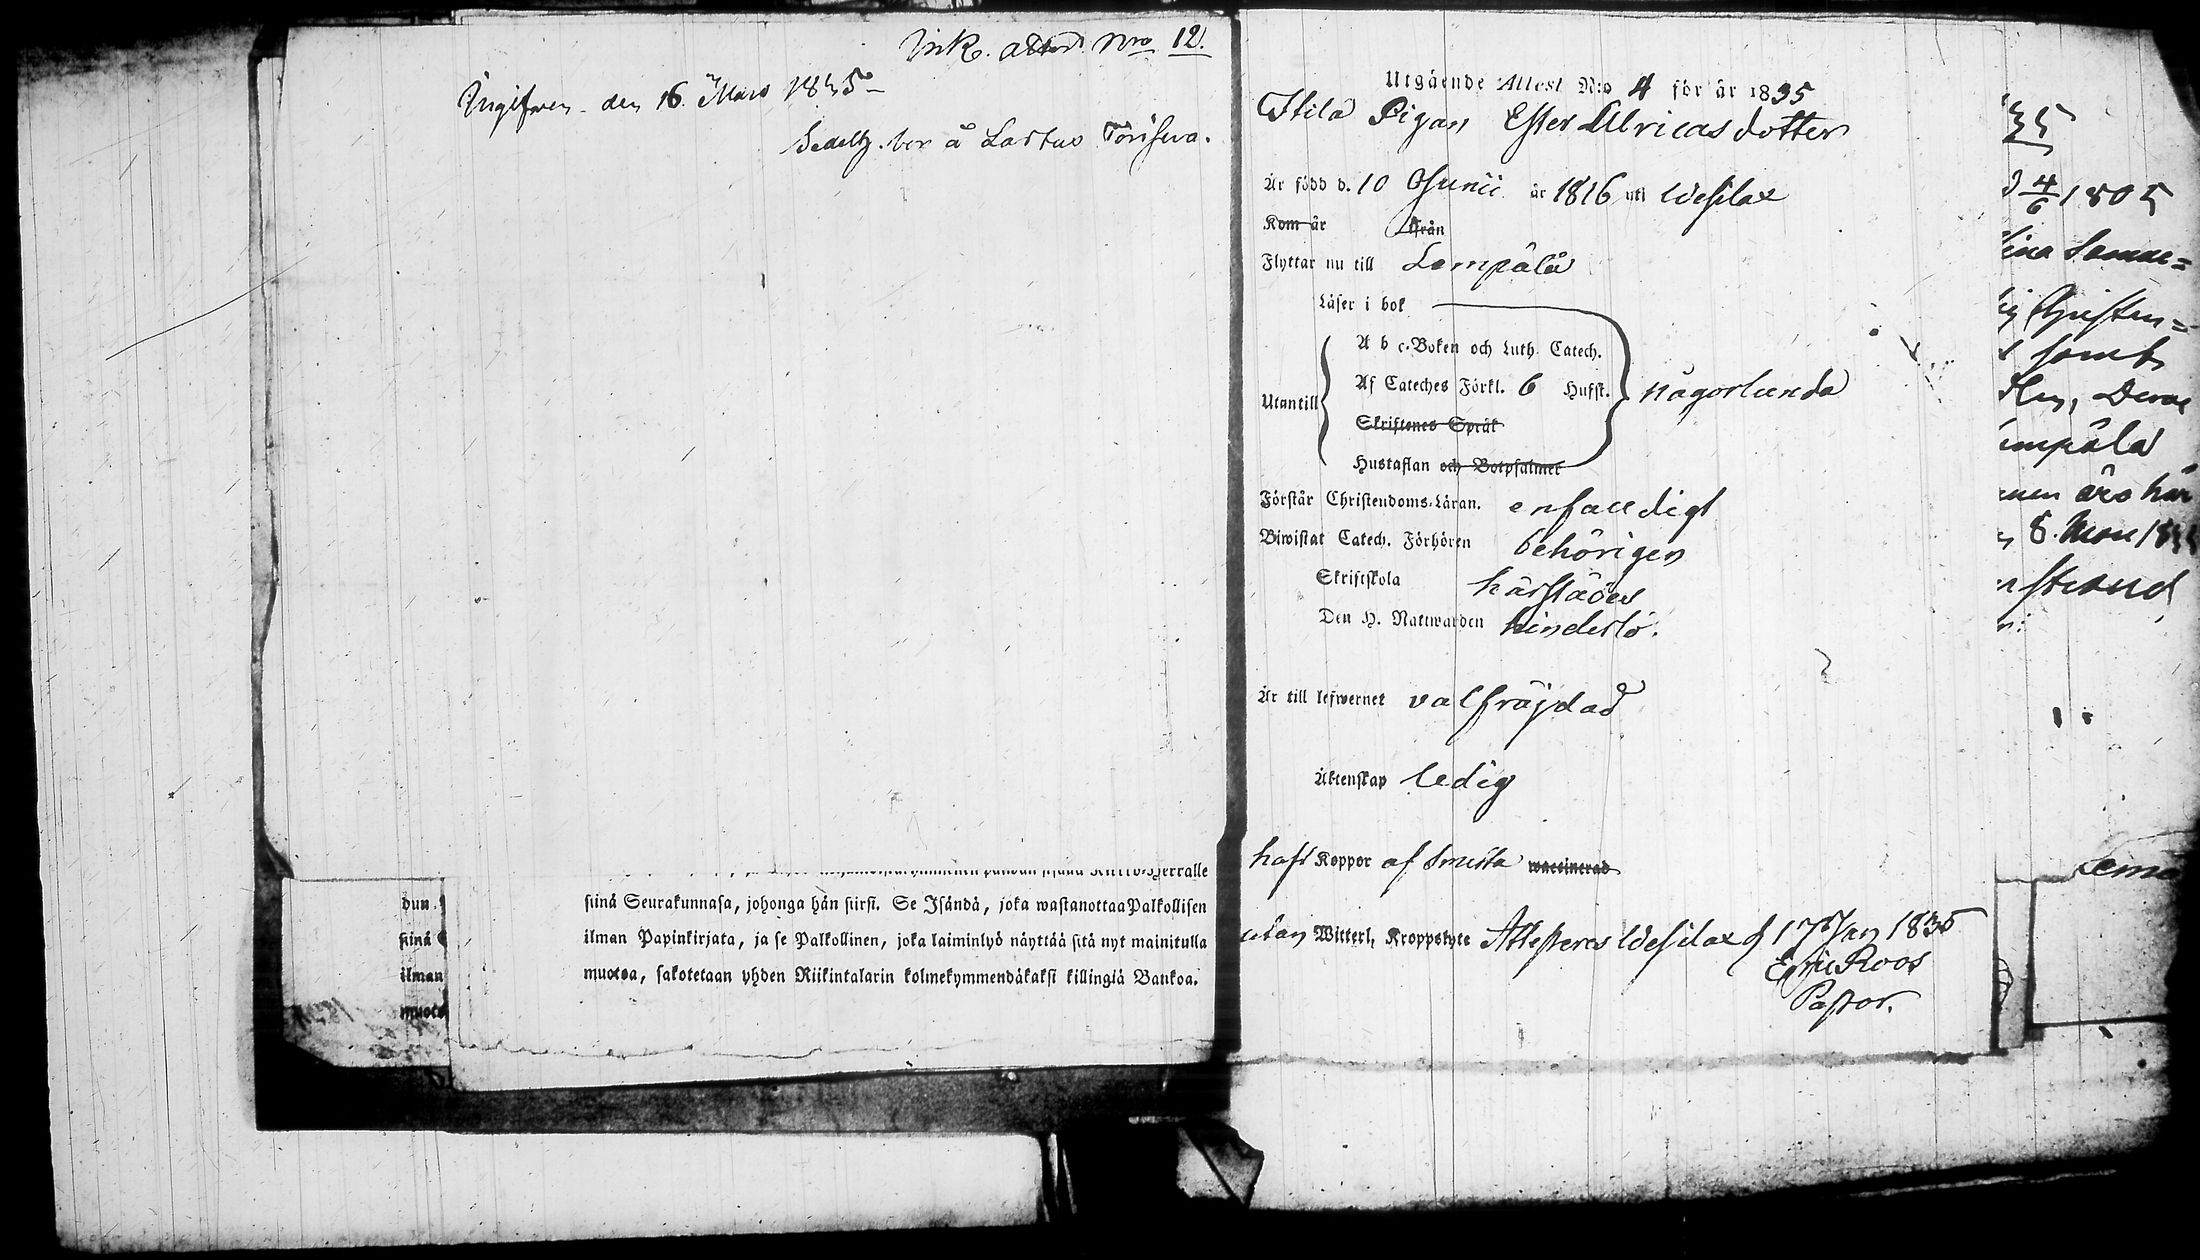 Ink. attest Nro 12.
Ingifven den 16 Mars 1835
bor å Lastus
siinä Seurakunnasa, johonga hän siirsi. Se Isändä, joka wastanottaa Palkollisen
ilman Papinkirjata, ja se Palkollinen, joka laiminlyö näyttää sitä nyt mainitulla
muotoa, sakotetaan yhden Riikintalarin kolmekymmendäkaksi killingiä Bankoa.
dun
siinä
ilman
muoto
Utgående Attest N:o 4 för år 1835
Pigan Ester Ulricas dotter
Är född d. 10 Junii år 1816 uti Wesilax
Kom år ifrån
Flyttar nu till Lempälä
Läser i bok
A b c-Boken och Luth. Catech.
Af Cateches Förkl. 6 Hufst.
Utantill
någorlunda
Skriftenes Språk
Hustaflan och Botpsalmer
Förstår Christendoms-Läran. enfaldigt
Biwistat Catech. Förhören behörigen
Skriftskola härstädes
Den H. Nattwarden hinderlö.
Är till lefwernet välfräjdad
Äktenskap ledig
haft Koppor af Smitta waccinerad
utan Witterl. Kroppslyte Attesteras Wesilax d 17 Jan 1835
Eric Roos
Pastor.
35
4/6 1805
som
Deras
äro här
8. Mars
strand